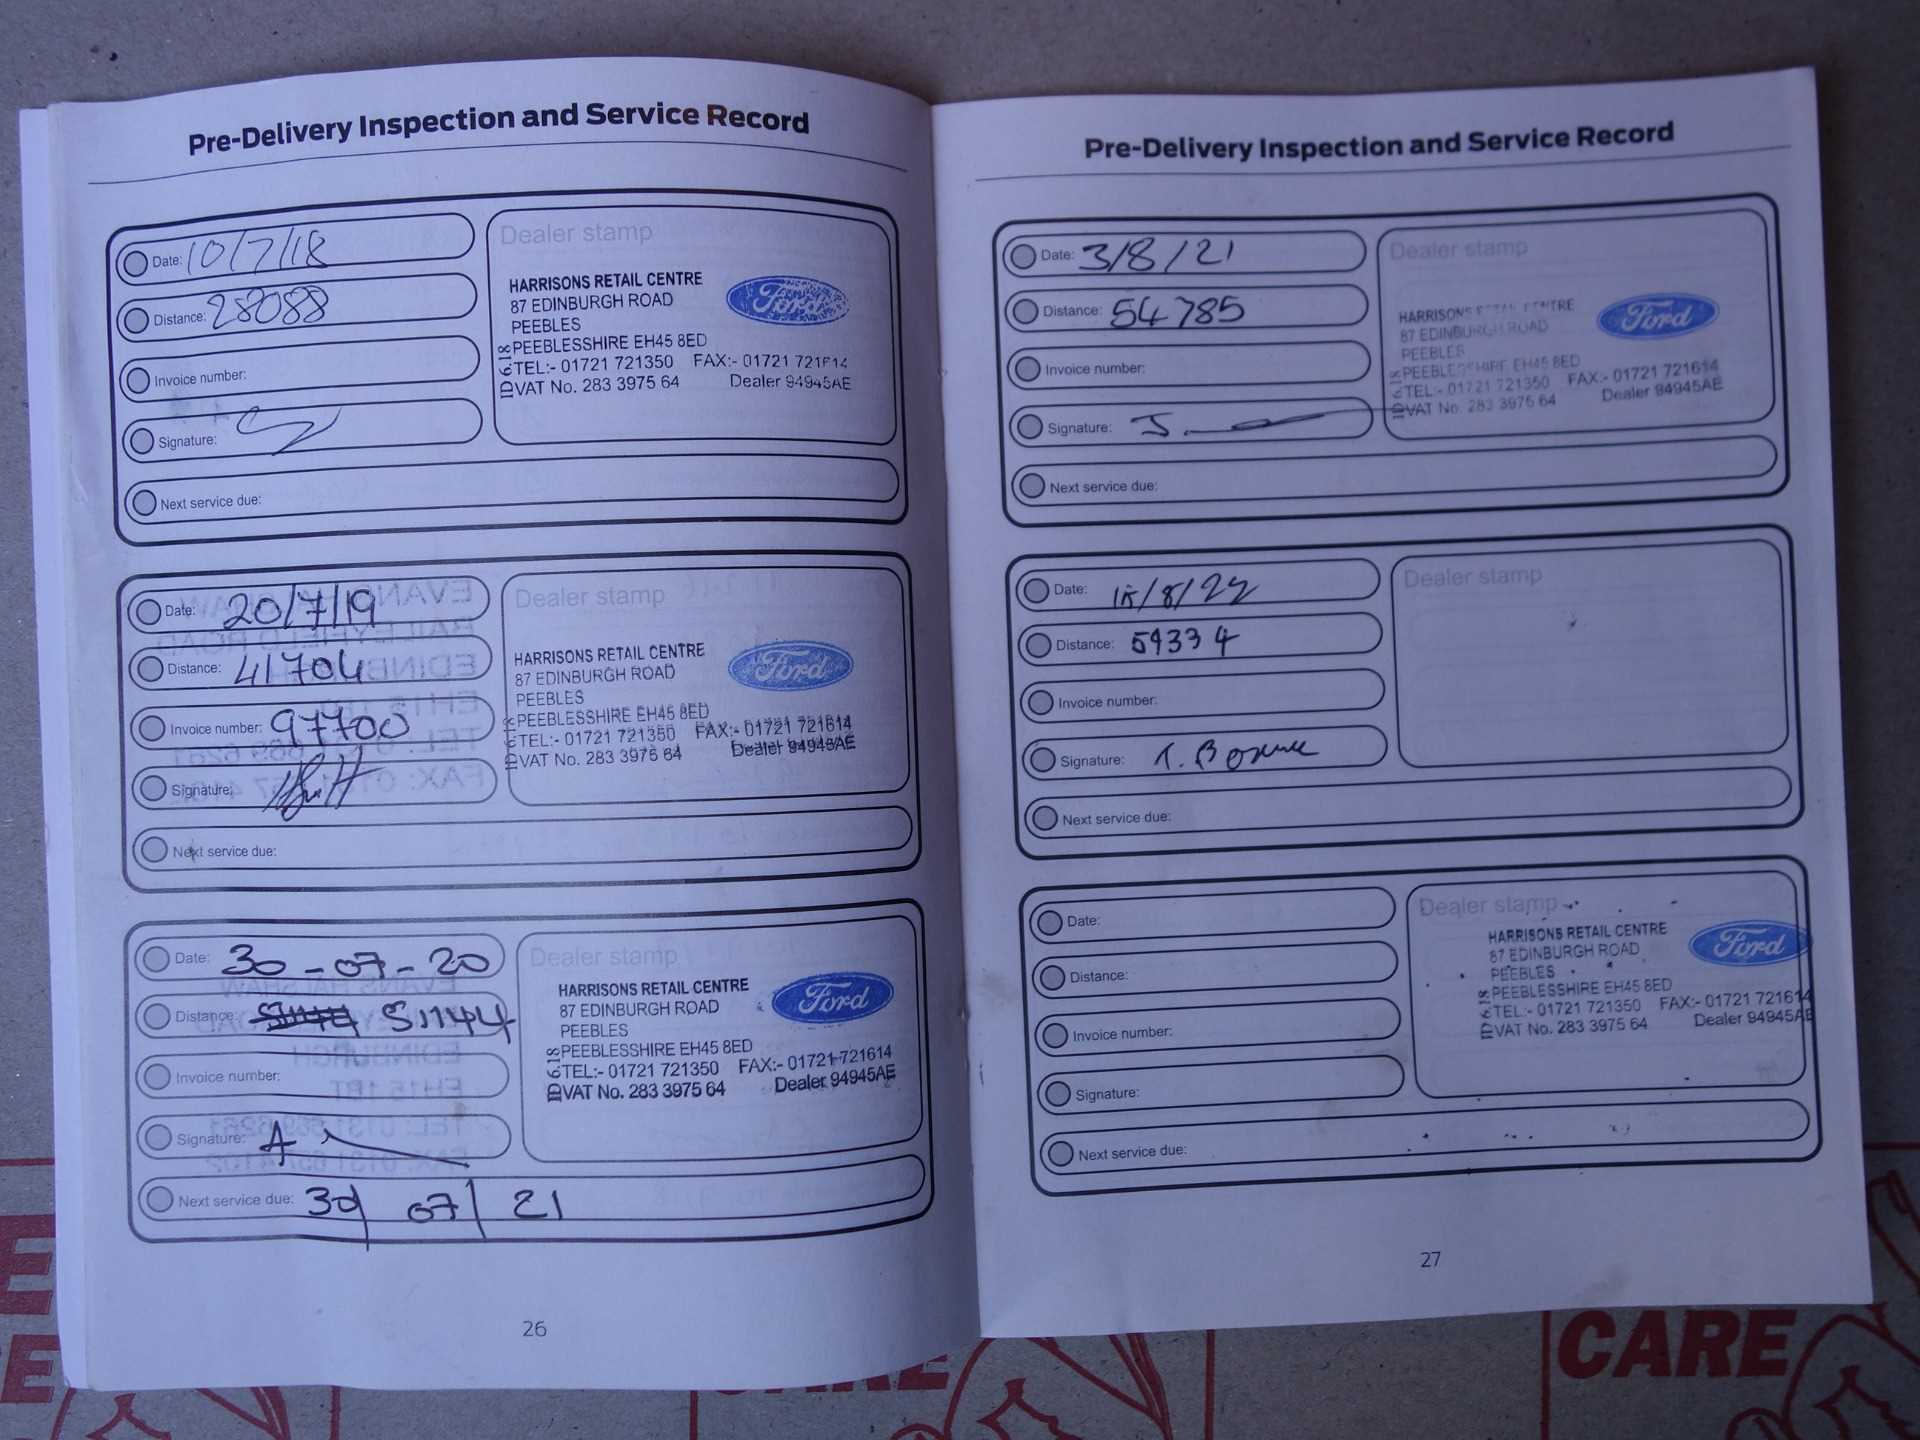 Pre-Delivery Inspection and Service Record
Date: 10/7/18
Distance: 28088
Invoice number:
Signature:
Next service due:
Dealer stamp
HARRISONS RETAIL CENTRE
87 EDINBURGH ROAD
PEEBLES
PEEBLESSHIRE EH45 8ED
TEL:- 01721 721350 FAX:- 01721 721614
VAT No. 283 3975 64 Dealer 94945AE
ID 6.18
Ford
Date: 20/7/19
Distance: 41704
Invoice number: 97700
Signature:
Next service due:
Dealer stamp
HARRISONS RETAIL CENTRE
87 EDINBURGH ROAD
PEEBLES
PEEBLESSHIRE EH45 8ED
TEL:- 01721 721350 FAX:- 01721 721614
VAT No. 283 3975 64 Dealer 94945AE
Ford
Date: 30-07-20
Distance: 51144
Invoice number:
Signature:
Next service due: 30/07/21
Dealer stamp
HARRISONS RETAIL CENTRE
87 EDINBURGH ROAD
PEEBLES
PEEBLESSHIRE EH45 8ED
TEL:- 01721 721350 FAX:- 01721 721614
VAT No. 283 3975 64 Dealer 94945AE
ID 6.18
Ford
26
Pre-Delivery Inspection and Service Record
Date: 3/8/21
Distance: 54785
Invoice number:
Signature:
Next service due:
Dealer stamp
HARRISONS RETAIL CENTRE
87 EDINBURGH ROAD
PEEBLES
PEEBLESSHIRE EH45 8ED
TEL:- 01721 721350 FAX:- 01721 721614
VAT No. 283 3975 64 Dealer 94945AE
ID 6.18
Ford
Date: /8/22
Distance: 59334
Invoice number:
Signature:
Next service due:
Dealer stamp
Date:
Distance:
Invoice number:
Signature:
Next service due:
Dealer stamp
HARRISONS RETAIL CENTRE
87 EDINBURGH ROAD
PEEBLES
PEEBLESSHIRE EH45 8ED
TEL:- 01721 721350 FAX:- 01721 721614
VAT No. 283 3975 64 Dealer 94945AE
ID 6.18
Ford
27
CARE